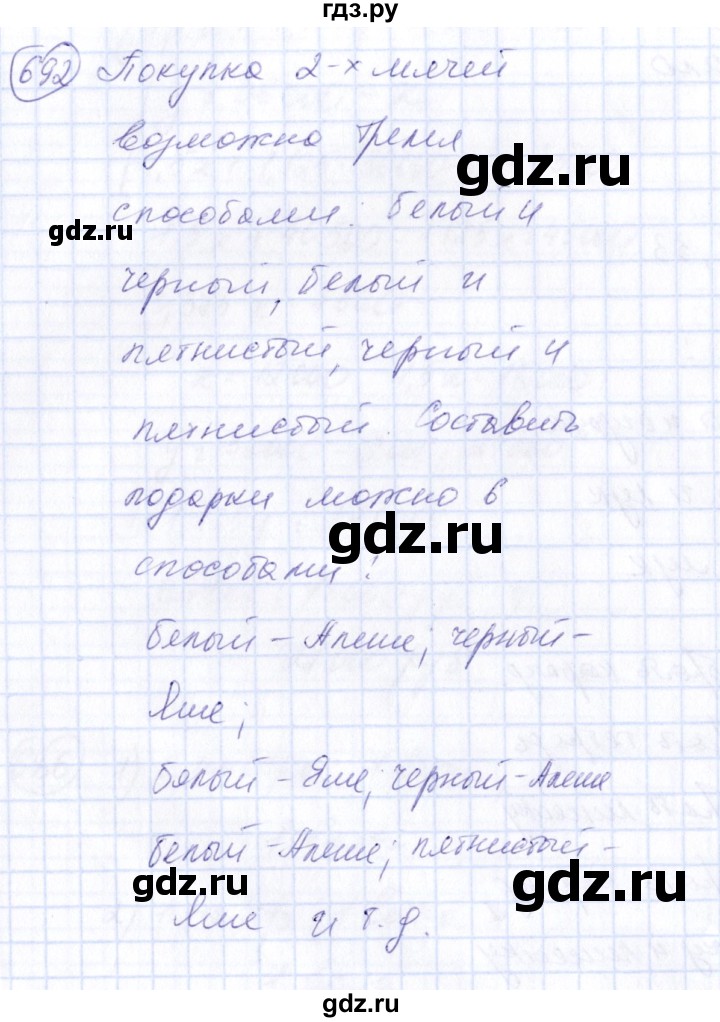 гдз.ру
692 Покупка 2-х мячей
возможна тремя
gdz.ru
способами: белый и
gdz.ru
черный, белый и
пятнистый, черный и
пятнистый. Составить
подарки можно 6
gdz.ru
способами:
белый - Алеше; черный -
Яше;
белый - Яше; черный - Алеше
белый - Алеше; пятнистый -
gdz.ru
gdz.ru
Яше и т.д.
gdz.ru